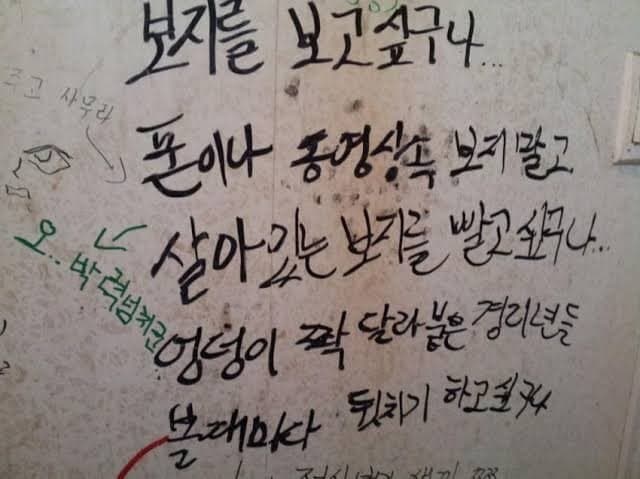 보지를 보고싶구나...
조고 사무라
폰이나 동영상속 보지말고
살아있는 보지를 빨고싶구나...
오.. 박력넘치군
엉덩이 짝 달라붙은 경리년들
볼때마다 뒷치기 하고싶구나